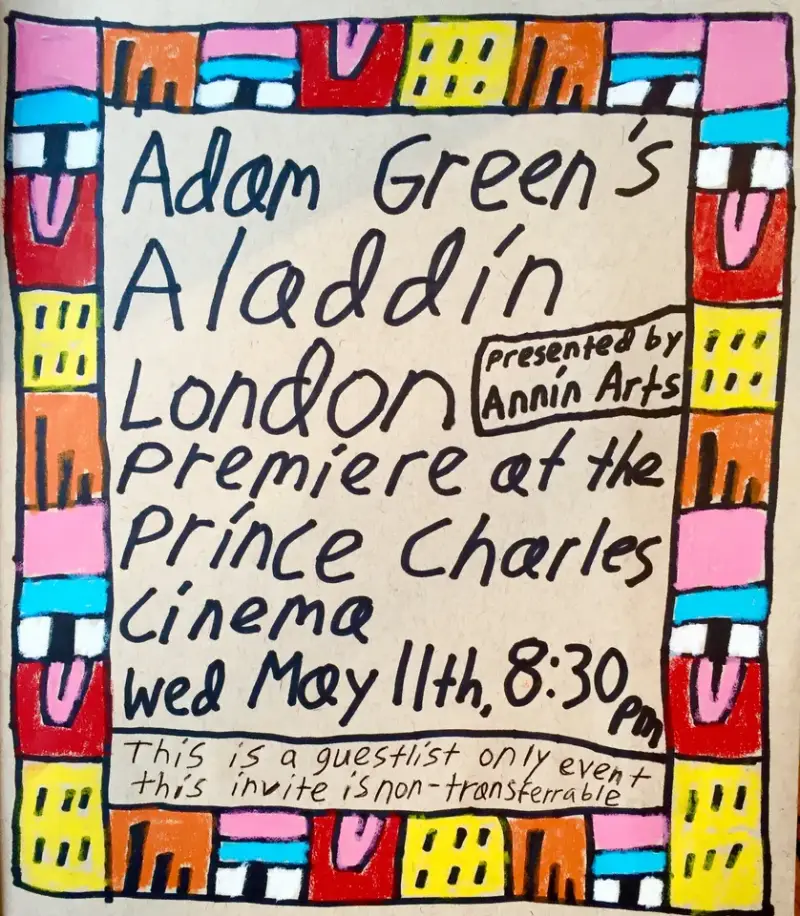 Adam Green's
Aladdin
London
Presented by
Annin Arts
Premiere at the
Prince Charles
Cinema
Wed May 11th, 8:30pm
This is a guestlist only event
this invite is non-transferrable